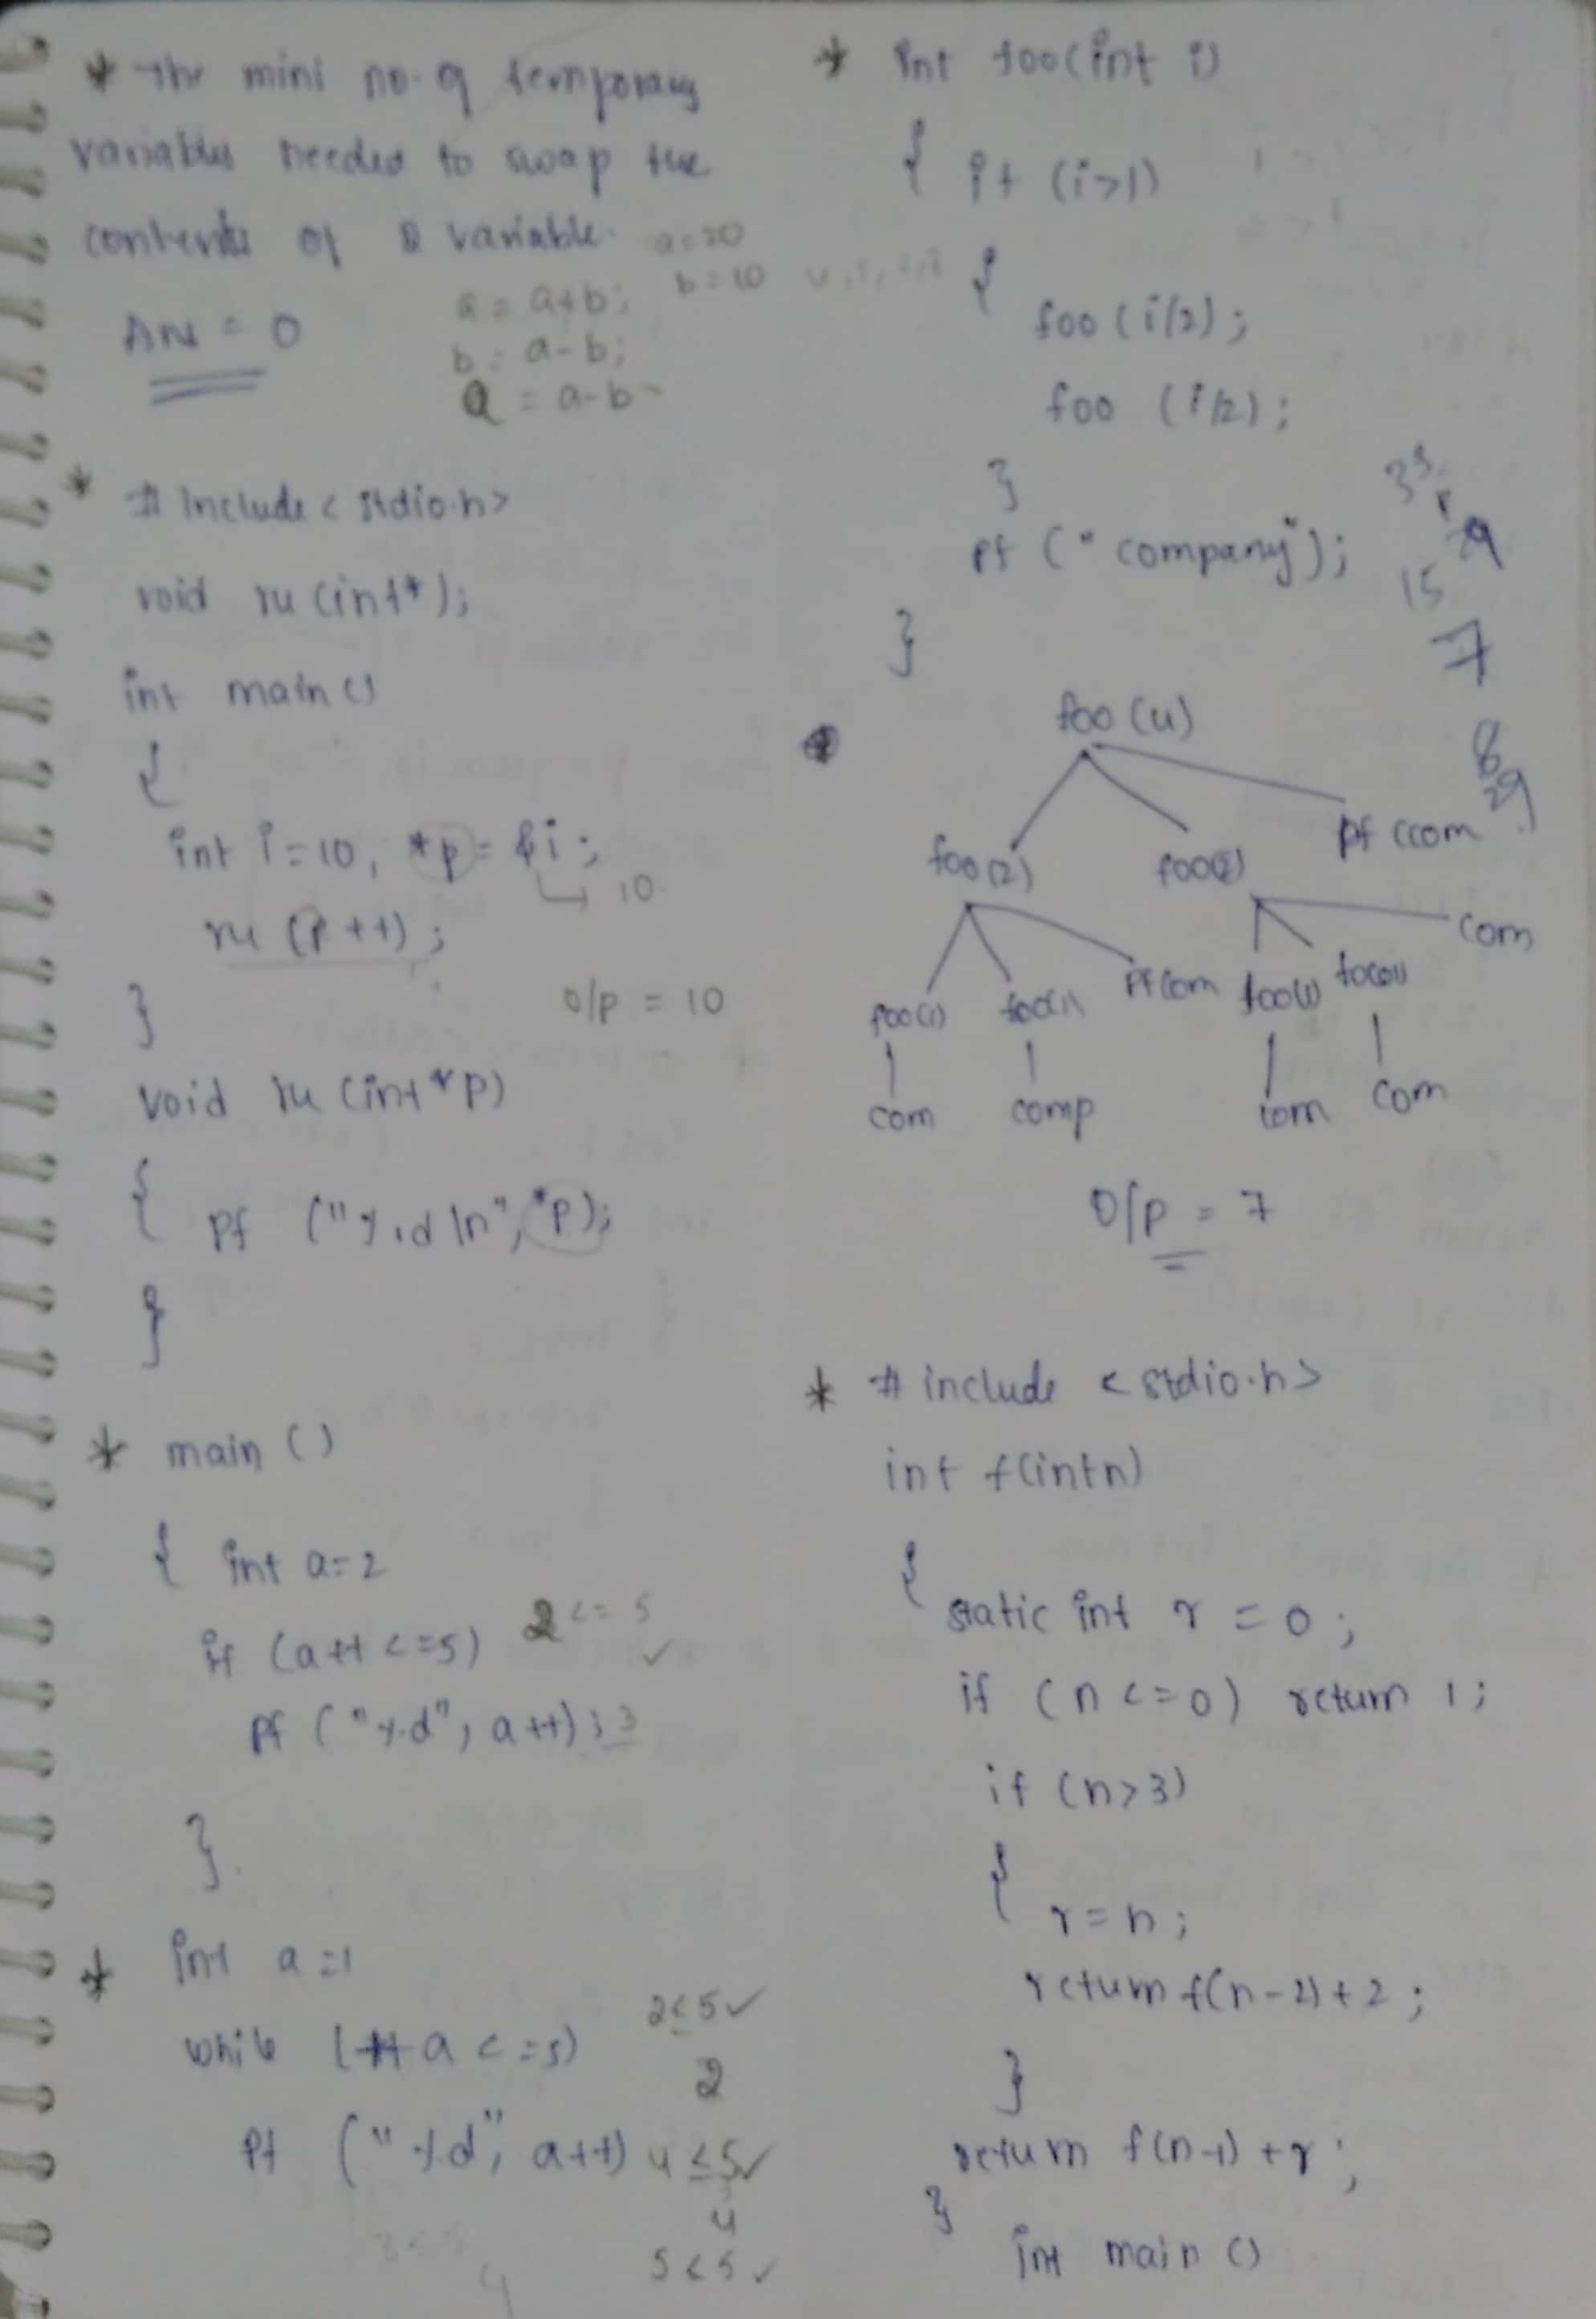 * The mini no. of temporary
variables needed to swap the
contents of 2 variable. a=20
b=10
Ans = 0
a = a+b;
b = a-b;
a = a-b
* # include < stdio.h>
void ru (int*);
int main ()
{
int i=10, *p = &i;
10
ru (p++);
}
o/p = 10
void ru (int *p)
{ pf ("%d \n", *p);
}
* main ()
{ int a=2
if (a++ <=5) 2 <= 5 ✓
pf ("%d", a++); 3
}
* int a=1
while (++a <=5) 2≤5 ✓
2
pf ("%d", a++) 4 ≤5 ✓
4
5<5 ✓
* int foo(int i)
{ if (i>1)
{
foo (i/2);
foo (i/2);
}
pf ("company");
}
15
7
foo (4)
foo (2) foo(2) pf (com
foo(1) foo(1 pf com foo(1) foo(1) com
com comp com com
O/p = 7
* # include < stdio.h>
int f(int n)
{
static int r = 0;
if (n <=0) return 1;
if (n>3)
{
r=n;
return f(n-2)+2;
}
return f(n-1) +r;
}
int main ()